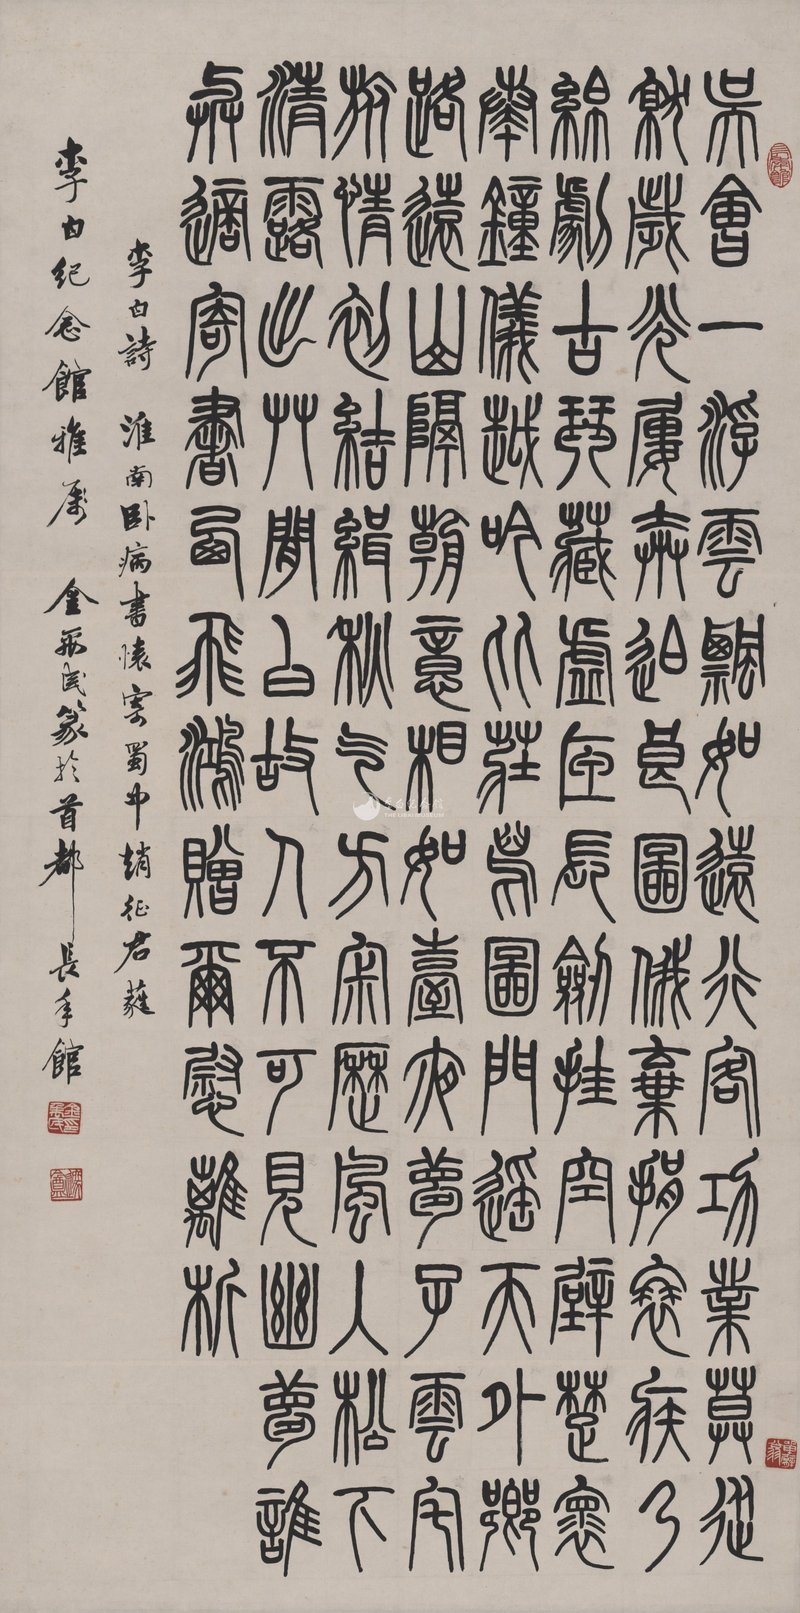 吳會一浮雲飄如遠行客功業莫從
就歲光屢奔迫良圖俄棄捐衰疾乃
綿劇古琴藏虛匣長劍挂空壁楚懷
奏鐘儀越吟比莊舄圖門遙天外鄉
路遠山隔朝意相如臺夜夢子雲宅
旅情初結緝秋气方宋歷風入松下
清露出艸間白故人不可見幽夢誰
與適寄書西飛鴻贈爾慰離析
李白詩 淮南卧病書懷寄蜀中趙征君蕤
李白紀念館雅屬 金禹民篆於首都長年館
李白纪念馆
THE LIBAI MUSEUM